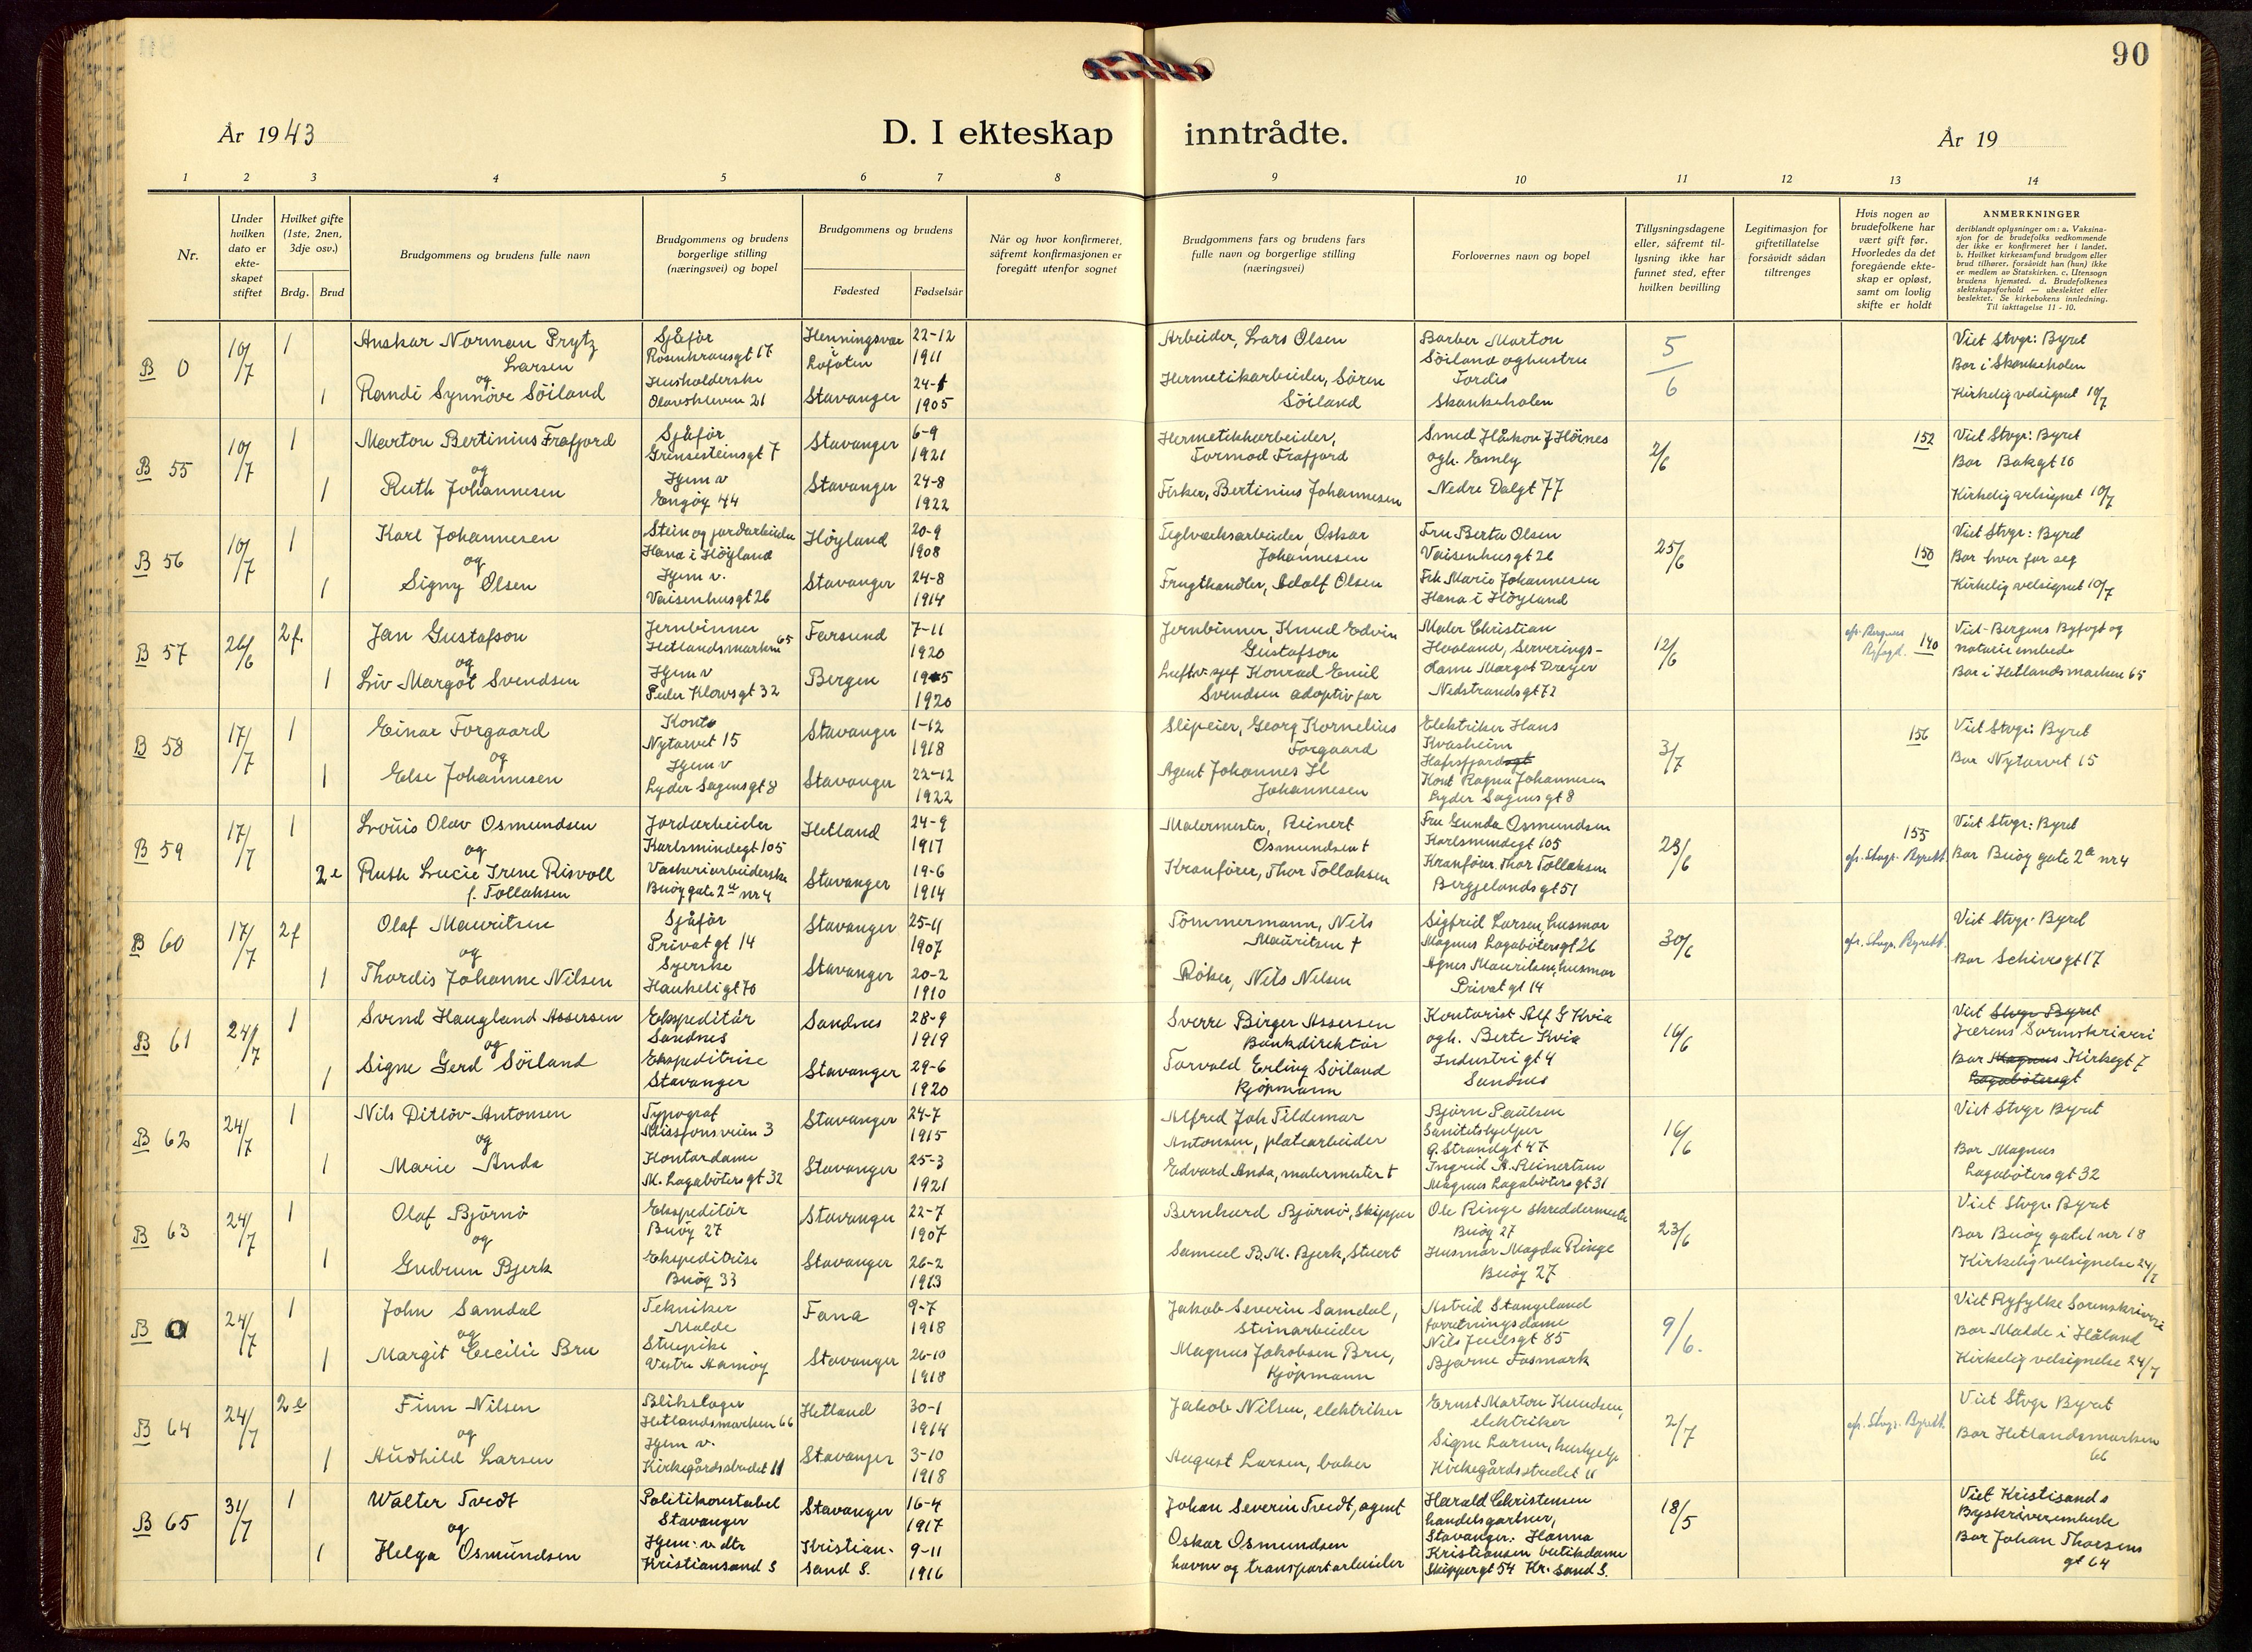 90
År 1943
D. I ekteskap inntrådte.
År 19
1 2 3 4 5 6 7 8 9 10 11 12 13 14
Nr.
Under hvilken dato er ekte-skapet stiftet
Hvilket gifte (1ste, 2nen, 3dje osv.)
Brdg. Brud
Brudgommens og brudens fulle navn
Brudgommens og brudens borgerlige stilling (næringsvei) og bopel
Brudgommens og brudens
Fødested Fødselsår
Når og hvor konfirmeret, såfremt konfirmasjonen er foregått utenfor sognet
Brudgommens fars og brudens fars fulle navn og borgerlige stilling (næringsvei)
Forlovernes navn og bopel
Tillysningsdagene eller, såfremt til-lysning ikke har funnet sted, efter hvilken bevilling
Legitimasjon for giftetillatelse forsåvidt sådan tiltrenges
Hvis nogen av brudefolkene har vært gift før. Hvorledes da det foregående ekte-skap er opløst, samt om lovlig skifte er holdt
ANMERKNINGER
deriblandt oplysninger om: a. Vaksina-sjon for de brudefolks vedkommende der ikke er konfirmeret her i landet. b. Hvilket kirkesamfund brudgom eller brud tilhører, forsåvidt han (hun) ikke er medlem av Statskirken. c. Utensogn brudens hjemsted. d. Brudefolkenes slektskapsforhold — ubeslektet eller beslektet. Se kirkebokens innledning. Til iakttagelse 11 - 10.
B 0 10/7 1 Anskar Norman Prytz Larsen Sjåfør Rosenkransgt 17 Henningsvær Lofoten 22-12 1911 Arbeider, Lars Olsen Barber Morton Söiland og hustru 5/6 Viet Stvgr: Byret
og
1 Randi Synnöve Söiland Husholderske Olavskleven 21 Stavanger 1905 Hermetikarbeider, Sören Söiland Tordis Skankeholen Bor i Skankeholen Kirkelig velsignet 10/7
B 55 10/7 1 Morton Bertinius Frafjord Sjåför Grensesteinsgt 7 Stavanger 6-9 1921 Hermetikkarbeider, Tormod Frafjord Smed Håkon J Höines 2/6 152 Viet Stvgr: Byret
og
1 Ruth Johannesen Hjem v Engöy 44 Stavanger 24-8 1922 Fisker, Bertinius Johannesen og h. Emly Nedre Dalgt 77 Bor Bakgt 10 Kirkelig velsignet 10/7
B 56 10/7 1 Karl Johannesen Stein og jordarbeider Hana i Höyland Höyland 20-9 1908 Teglverksarbeider, Oskar Johannesen Fru Berta Olsen Vaisenhusgt 26 25/6 150 Viet Stvgr: Byret
og
1 Signy Olsen Hjem v. Vaisenhusgt 26 Stavanger 24-8 1914 Frugthandler, Adolf Olsen Frk Marie Johannesen Hana i Höyland Bor hver for seg Kirkelig velsignet 10/7
B 57 26/6 2f. Jan Gustafson Jernbinner Hetlandsmarken 65 Farsund 7-11 1920 Jernbinner, Knud Edvin Gustafson Maler Christian 12/6 140 Viet Bergens Byfogt og
og
1 Liv Margot Svendsen Hjem v Peder Klowsgt 32 Bergen 1920 Konrad Emil Svendsen adoptivfar dame Margot Dreyer Nedstrandsgt 72 Bor i Hetlandsmarken 65
B 58 17/7 1 Einar Torgaard Kont. Nytorvet 15 Stavanger 1-12 1918 Slipeier, Georg Kornelius Torgaard Elektriker Hans Kvasheim 3/7 156 Viet Stvgr: Byret
og
1 Else Johannesen Hjem v Lyder Sagensgt 8 Stavanger 22-12 1922 Agent Johannes Johannesen Kont Ragna Johannesen Lyder Sagens gt 8 Bor Nytorvet 15
B 59 17/7 1 Lovis Olav Osmundsen Jordarbeider Karlsmindegt 105 Hetland 24-9 1917 Malermester, Reinert Osmundsen † Fru Gunda Osmundsen Karlsmindegt 105 23/6 155 Viet Stvgr: Byret
og
2e Ruth Lucie Irene Risvoll f. Tollaksen Vaskeriarbeiderske Buöygate 2de nr 4 Stavanger 19-6 1914 Kranförer, Thor Tollaksen Kranförer Thor Tollaksen Bergjelandsgt 51 Bor Buöy gate 2de nr 4
B 60 17/7 2f Olaf Mauritsen Sjåför Privatgt 14 Stavanger 25-11 1907 Tömmermann, Nils Mauritsen † Sigfrid Larsen, husmor Magnus Lagabötersgt 26 30/6 Viet Stvgr. Byret
og
1 Thordis Johanne Nilsen Syerske Haukeligt 70 Stavanger 20-2 1910 Röker, Nils Nelsen Agnes Mauritsen, husmor Privatgt 14 Bor Schivesgt 17
B 61 24/7 1 Svend Haugland Assersen Ekspeditör Sandnes Sandnes 28-9 1919 Sverre Birger Assersen Bankdirektör Kontorist Alf G Kvia 16/6 Viet Stvgr Byret
og
1 Signe Gerd Söiland Ekspeditrise Stavanger Stavanger 29-6 1920 Torvald Erling Söiland Kjöpmann og h. Berte Kvia Industrigt 4 Sandnes Bor Magnus Kirkegt 7 Lagabötersgt
B 62 24/7 1 Nils Ditlöv Antonsen Typograf Missjonsveien 3 Stavanger 24-7 1915 Alfred Joh Tildemar Antonsen, platearbeider Björn Paulsen Sanitetshjelper Ö. Strandgt 47 16/6 Viet Stvgr Byret
og
1 Marie Anda Kontordame M. Lagabötersgt 32 Stavanger 25-3 1921 Edvard Anda, malermester † Ingrid A. Reinertsen Magnus Lagabötersgt 31 Bor Magnus Lagabötersgt 32
B 63 24/7 1 Olaf Björnö Ekspeditör Buöy 27 Stavanger 22-7 1907 Bernhard Björnö, Skipper Ole Ringe skreddermester Buöy 27 23/6 Viet Stvgr Byret
og
1 Gudrun Bjerk Ekspeditrise Buöy 33 Stavanger 26-2 1913 Samuel B.M. Bjerk, Stuert Husmor Magda Ringe Buöy 27 Bor Buöy gate 1 nr 18 Kirkelig velsignelse 24/7
B 0 24/7 1 John Samdal Tekniker Malde Fana 9-7 1918 Jakob Severin Samdal, Steinarbeider Astrid Stangeland forretningsdame Nils Juelsgt 85 9/6. Viet Ryfylke Sorenskriveri
og
1 Margit Cecilie Bru Stuepike Vestre Åmöy Stavanger 26-10 1918 Magnus Jakobsen Bru, Kjöpmann Bjarne Fosmark Bor Malde i Håland Kirkelig velsignelse 24/7
B 64 24/7 2e Finn Nilsen Blikslager Hetlandsmarken 66 Hetland 30-1 1914 Jakob Nilsen, elektriker Ernst Morton Knudsen, elektriker 2/7 Viet Stvgr Byret
og
1 Audhild Larsen Hjem v. Kirkegårdsstredet 11 Stavanger 3-10 1918 August Larsen, baker Signe Larsen, hushjelp Kirkegårdsstredet 11 Bor Hetlandsmarken 66
B 65 31/7 1 Walter Tvedt Politikonstabel Stavanger Stavanger 16-4 1917 Johan Severin Tvedt, agent Harald Christensen handelsgartner, Stavanger. 18/5 Viet Kristisands Byskriverembede
og
1 Helga Osmundsen Hjem. v. dtr Kristiansand S Kristian-sand S. 9-11 1916 Oskar Osmundsen havne og transportarbeider Hanna Kristiansen butikdame Skippergt 54 Kr. sand S. Bor Johan Thorsens gt 64